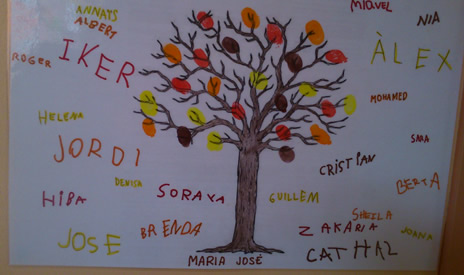 ANNAYS
ALBERT
MIQUEL
NIA
ROGER
IKER
ÀLEX
MOHAMED
HELENA
JORDI
SARA
CRISTIAN
DENISA
SORAYA
GUILLEM
BERTA
HIBA
JOSE
BRENDA
ZAKARIA
SHEILA
JOANA
MARIA JOSÉ